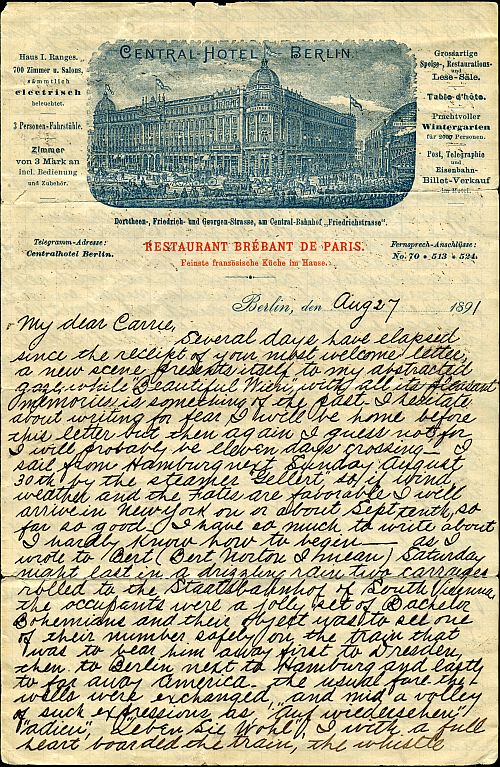 CENTRAL-HOTEL BERLIN.
Haus I. Ranges.
700 Zimmer u. Salons,
sämmtlich
electrisch
beleuchtet.
3 Personen-Fahrstühle.
Zimmer
von 3 Mark an
incl. Bedienung
und Zubehör.
Grossartige
Speise-, Restaurations-
und
Lese-Säle.
Table d'hôte.
Prachtvoller
Wintergarten
für 2000 Personen.
Post, Telegraphie
und
Eisenbahn-
Billet-Verkauf
im Hotel.
Dorotheen-, Friedrich- und Georgen-Strasse, am Central-Bahnhof „Friedrichstrasse".
Telegramm-Adresse:
Centralhotel Berlin.
RESTAURANT BRÉBANT DE PARIS.
Feinste französische Küche im Hause.
Fernsprech-Anschlüsse:
No. 70 • 513 • 524.
Berlin, den Aug 27 1891
My dear Carrie,
Several days have elapsed
since the receipt of your most welcome letter,
a new scene presents itself to my abstracted
gaze while "Beautiful Wien" with all its pleasant
memories is something of the past. I hesitate
about writing for fear I will be home before
this letter but then again I guess not for
I will probably be eleven days crossing — I
sail from Hamburg next Sunday, August
30th by the steamer Gellert, so if wind,
weather and the Fates are favorable I will
arrive in New York on or about Sept tenth, so
far so good. I have so much to write about
I hardly know how to begin — as I
wrote to Bert (Bert Norton I mean) Saturday
night last in a drizzling rain two carriages
rolled to the Staatsbahnhof of South Vienna,
the occupants were a jolly set of Bachelor
Bohemians and their object was to see one
of their number safely on the train that
was to bear him away first to Dresden,
then to Berlin next to Hamburg and lastly
to far away America. the usual fare thee
wells were exchanged, and mid a volley
of such expressions as, "auf wiedersehen",
"adieu", "Leben Sie Wohl", I with a full
heart boarded the train, the whistle